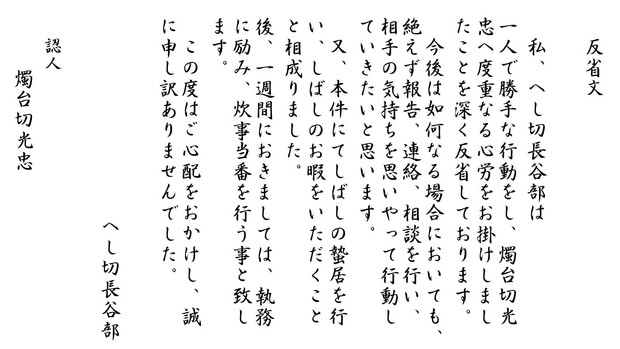 反省文
私、へし切長谷部は
一人で勝手な行動をし、燭台切光
忠へ度重なる心労をお掛けしまし
たことを深く反省しております。
今後は如何なる場合においても、
絶えず報告、連絡、相談を行い、
相手の気持ちを思いやって行動し
ていきたいと思います。
又、本件にてしばしの蟄居を行
い、しばしのお暇をいただくこと
と相成りました。
後、一週間におきましては、執務
に励み、炊事当番を行う事と致し
ます。
この度はご心配をおかけし、誠
に申し訳ありませんでした。
へし切長谷部
認人
燭台切光忠